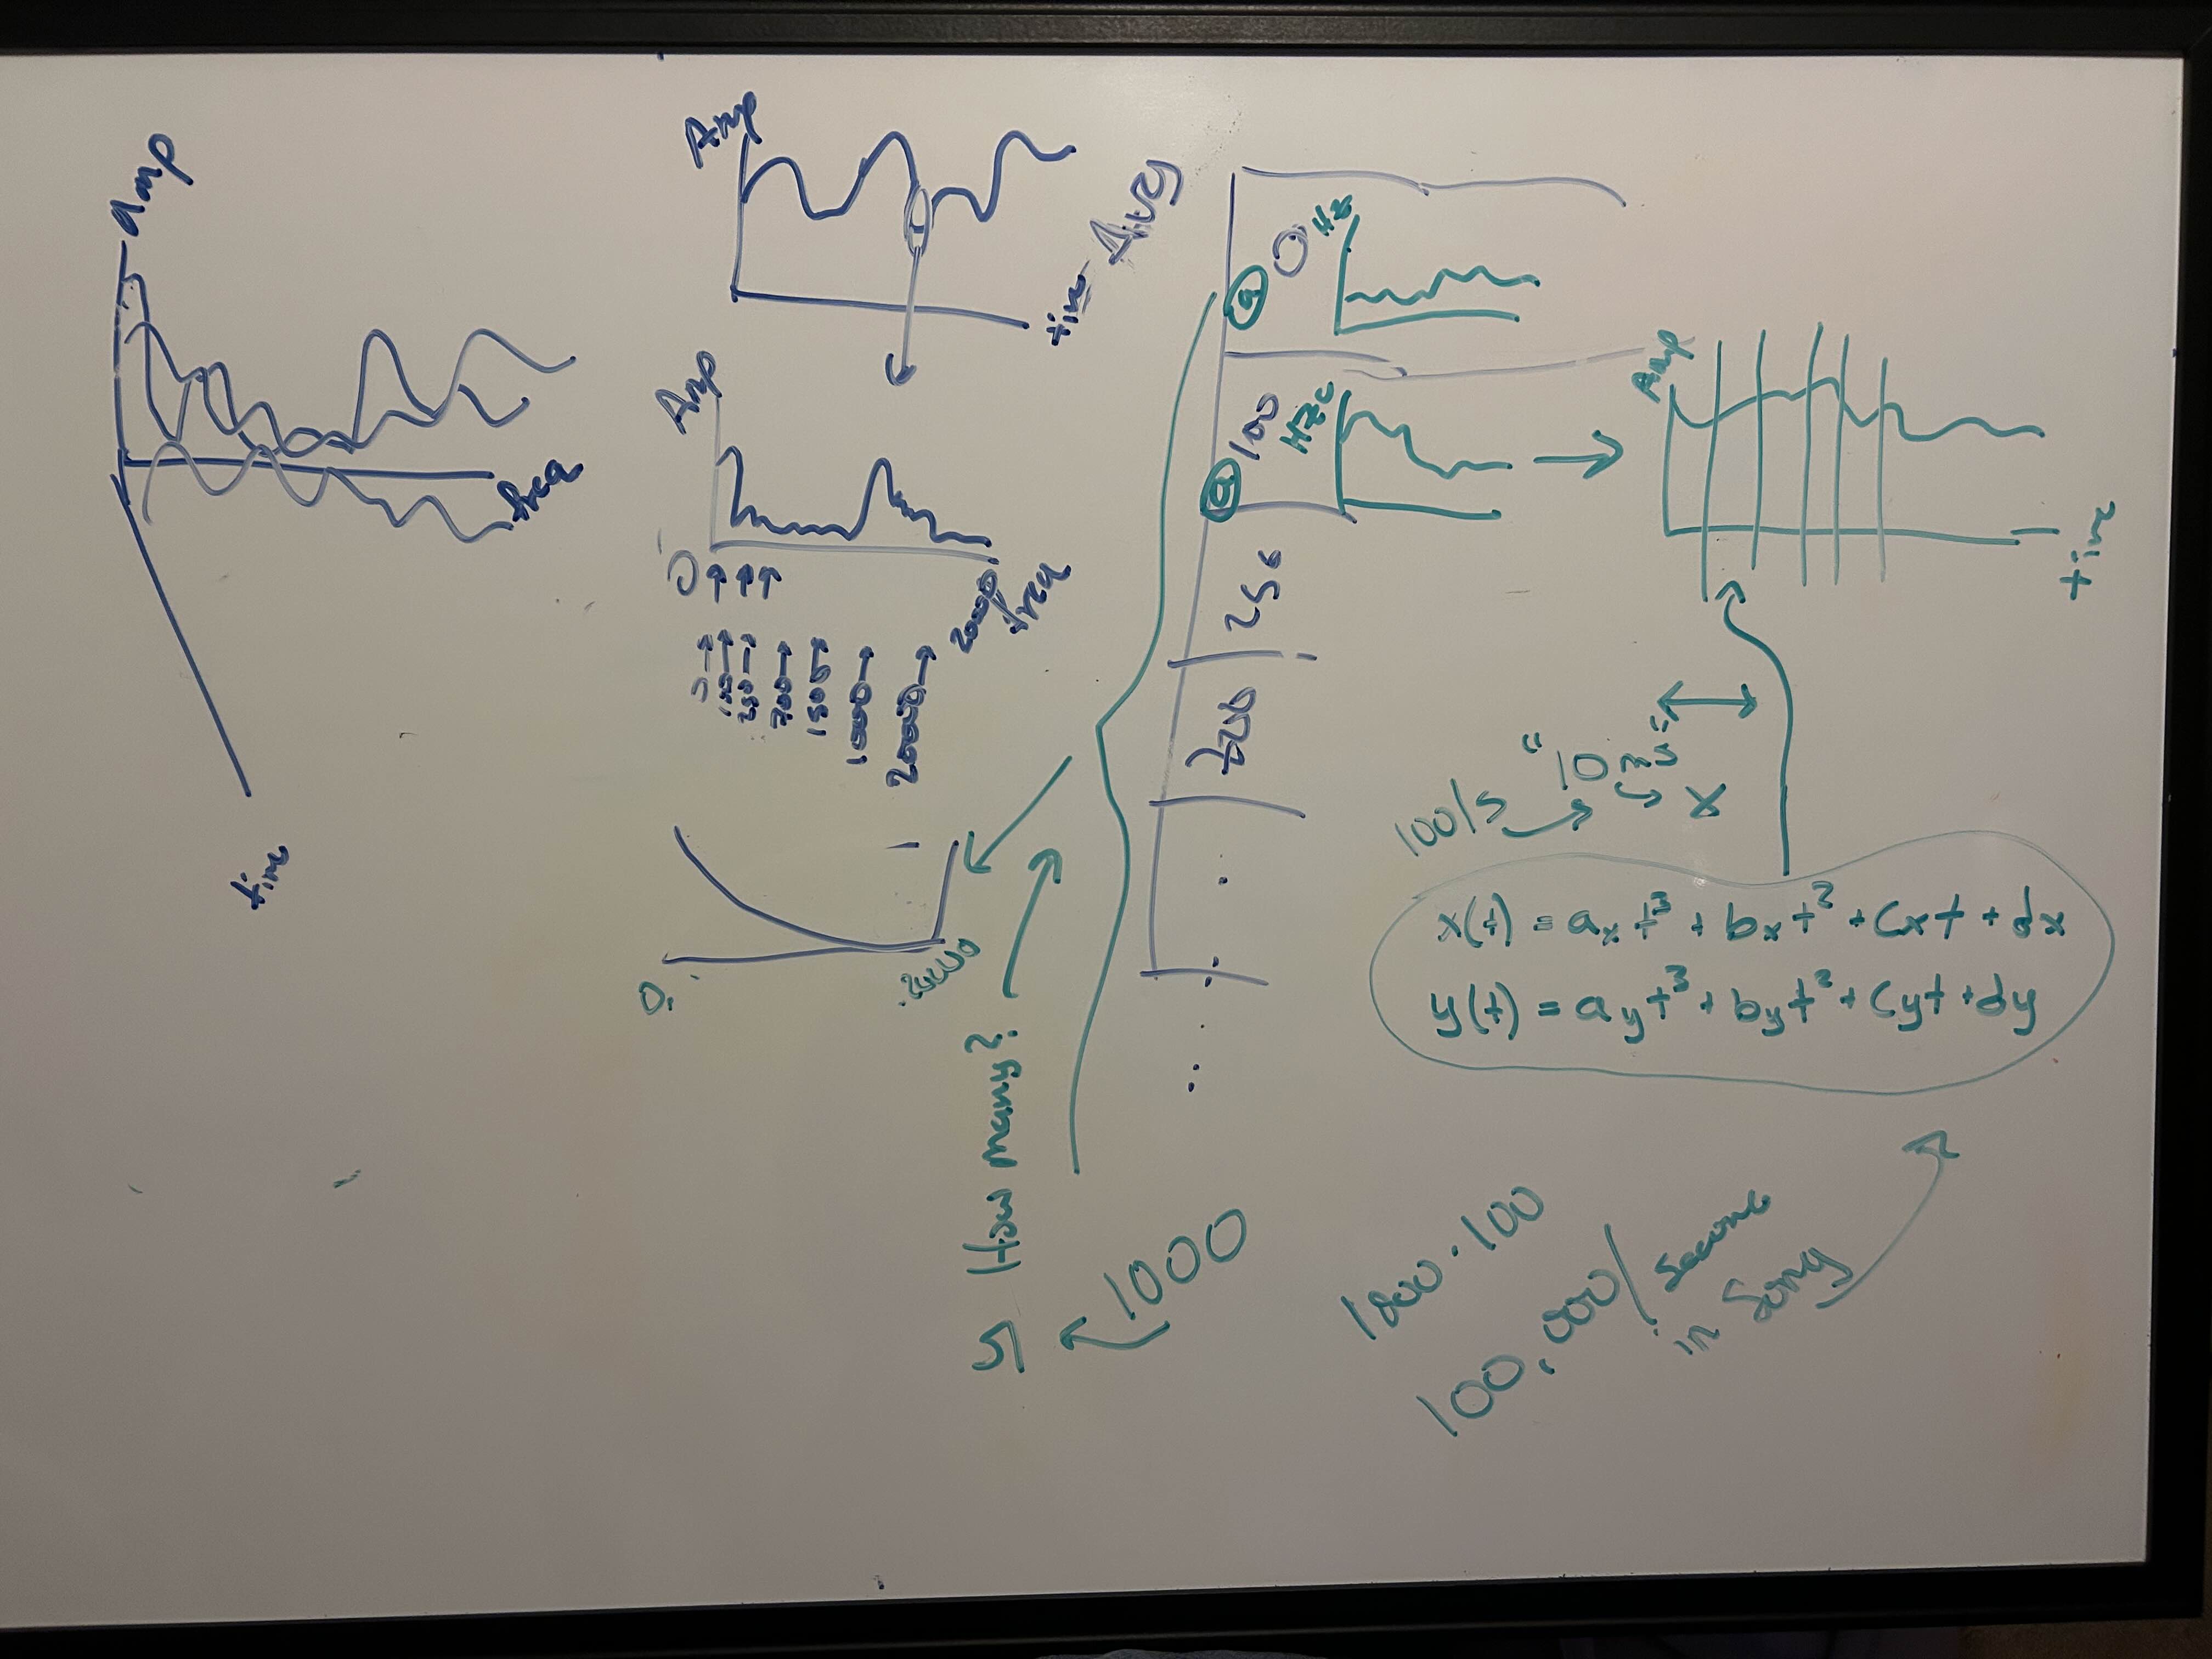 amp
freq
time
Amp
time
Avg
Amp
0
20000
freq
0
100
250
700
1500
10000
20000
0
20000
How many?
5
1000
0 Hz
100 Hz
250
700
Amp
time
100/s
"10 ms"
x
x(t) = axt³ + bxt² + cxt + dx
y(t) = ayt³ + byt² + cyt + dy
1000 · 100
100,000/second
in song